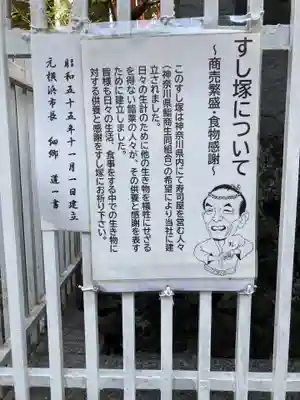 すし塚について
～商売繁盛・食物感謝～
このすし塚は神奈川県内にて寿司屋を営む人々
(神奈川県鮨商生同組合)の希望により当社に建
立されました。
日々の生計のために他の生き物を犠牲にせざる
を得ない鮨業の人々が、その供養と感謝を表す
ために建立しました。
皆様も日々の生活、食事をする中での生き物に
対する供養と感謝をすし塚にお祈り下さい。
昭和五十五年十一月一日建立
元横浜市長 細郷 道一書